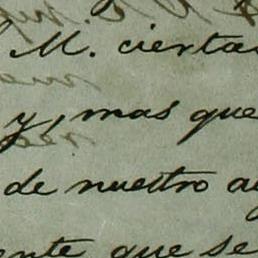 M. cierta
y, mas que
de nuestro a
ente que se